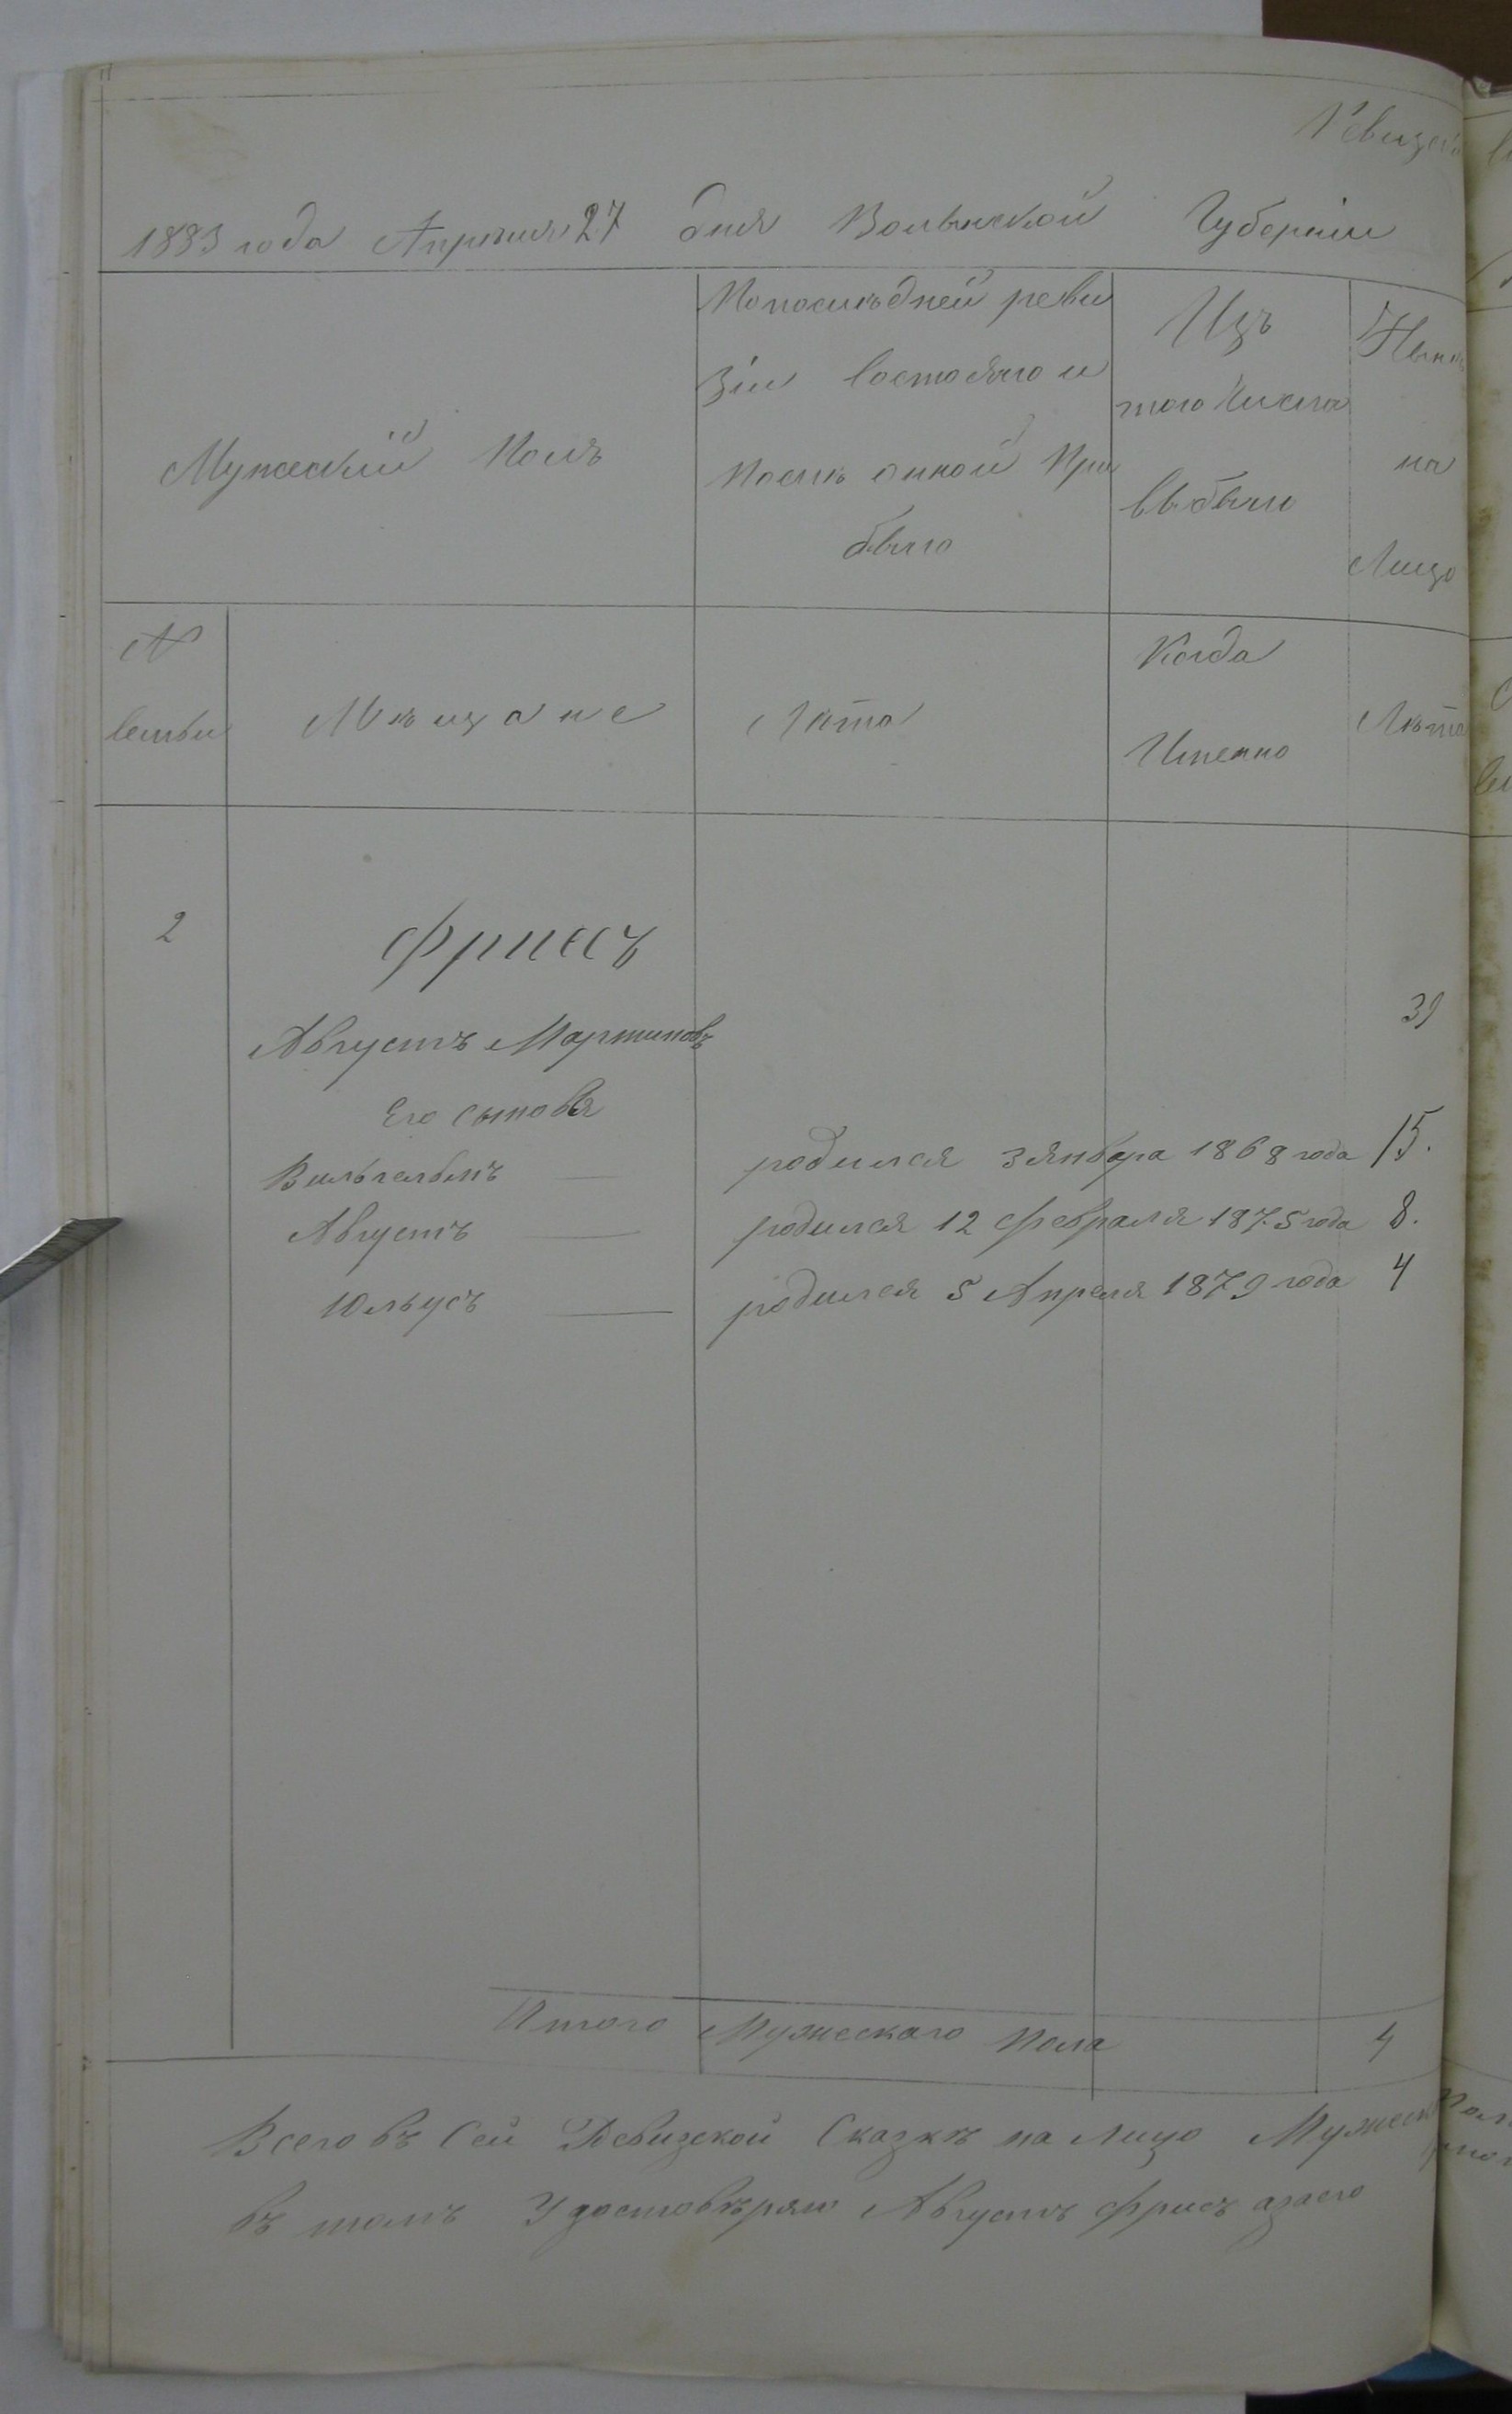 Ревизск
1883 года Апрѣля 27 дня Волынской Губерніи
Мужескій Полъ
Попослѣдней реви
зіи Состояло и
Послѣ оной При
было
Изъ
того Числа
выбыло
Нынѣ
на
Лицо
№
Семьи
Мѣщане
Лѣта
Когда
Именно
Лѣта
2
Фрисъ
Августъ Мартиновъ 39
Его Сыновья
Вильгельмъ — родился 3 Января 1868 года 15.
Августъ — родился 12 Февраля 1875 года 8.
Юльусъ — родился 5 Апреля 1879 года 4
Итого Мужескаго Пола 4
Всего въ Сей Ревизской Сказкѣ на Лицо Мужеск
въ томъ Удостовѣряю Августъ Фрисъ